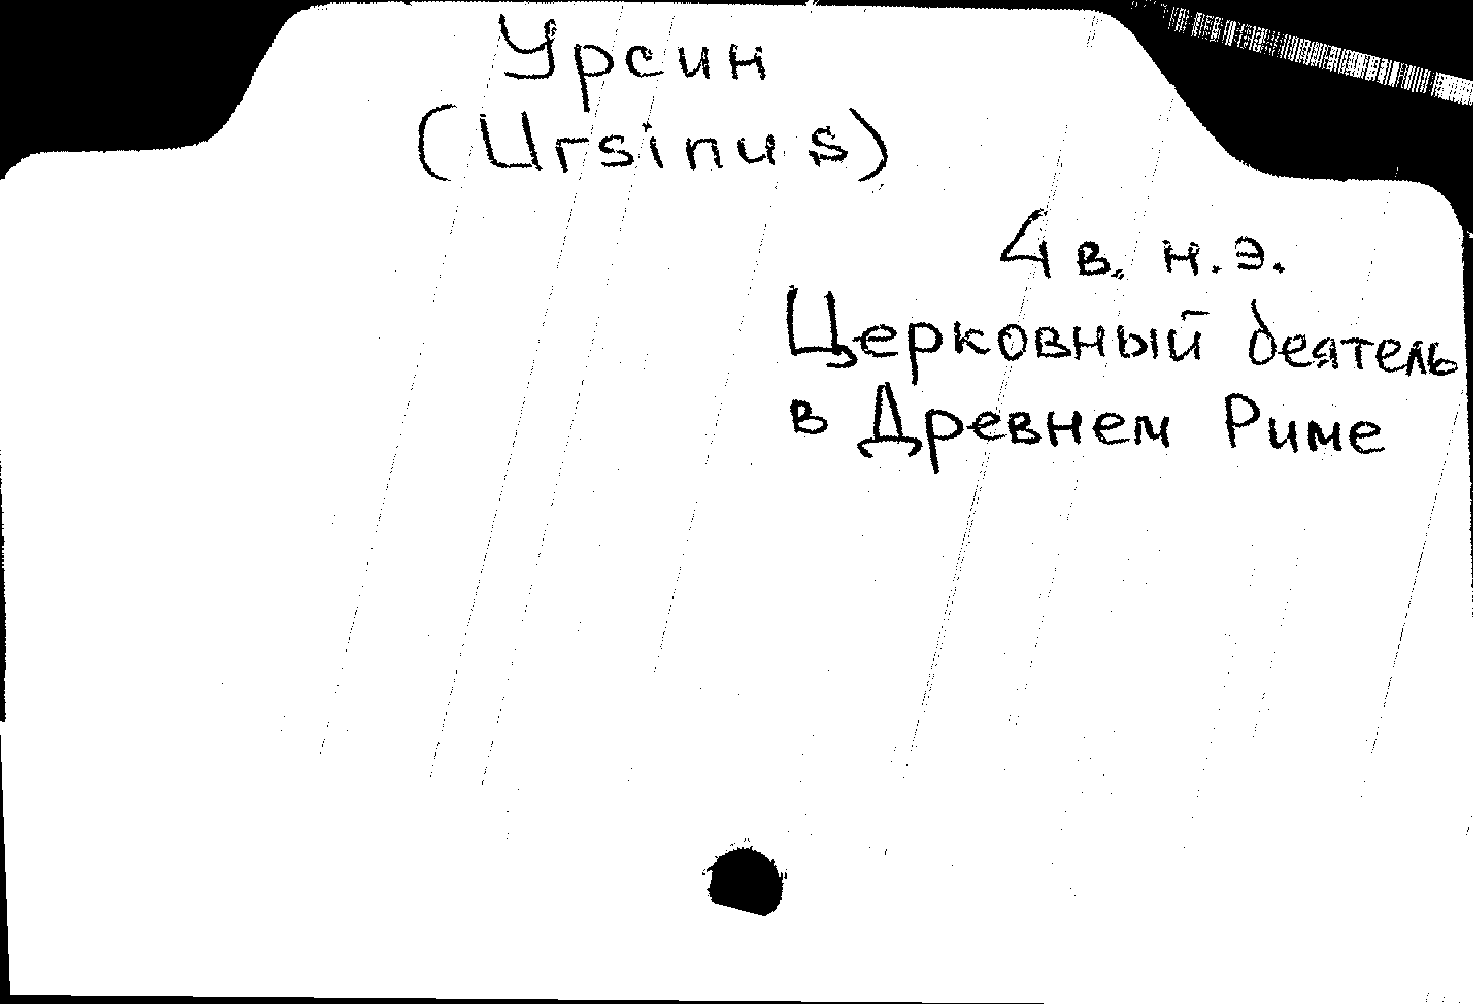 Урсин
(Ursinus)
4 в. н.э.
Церковный деятель
в Древнем Риме